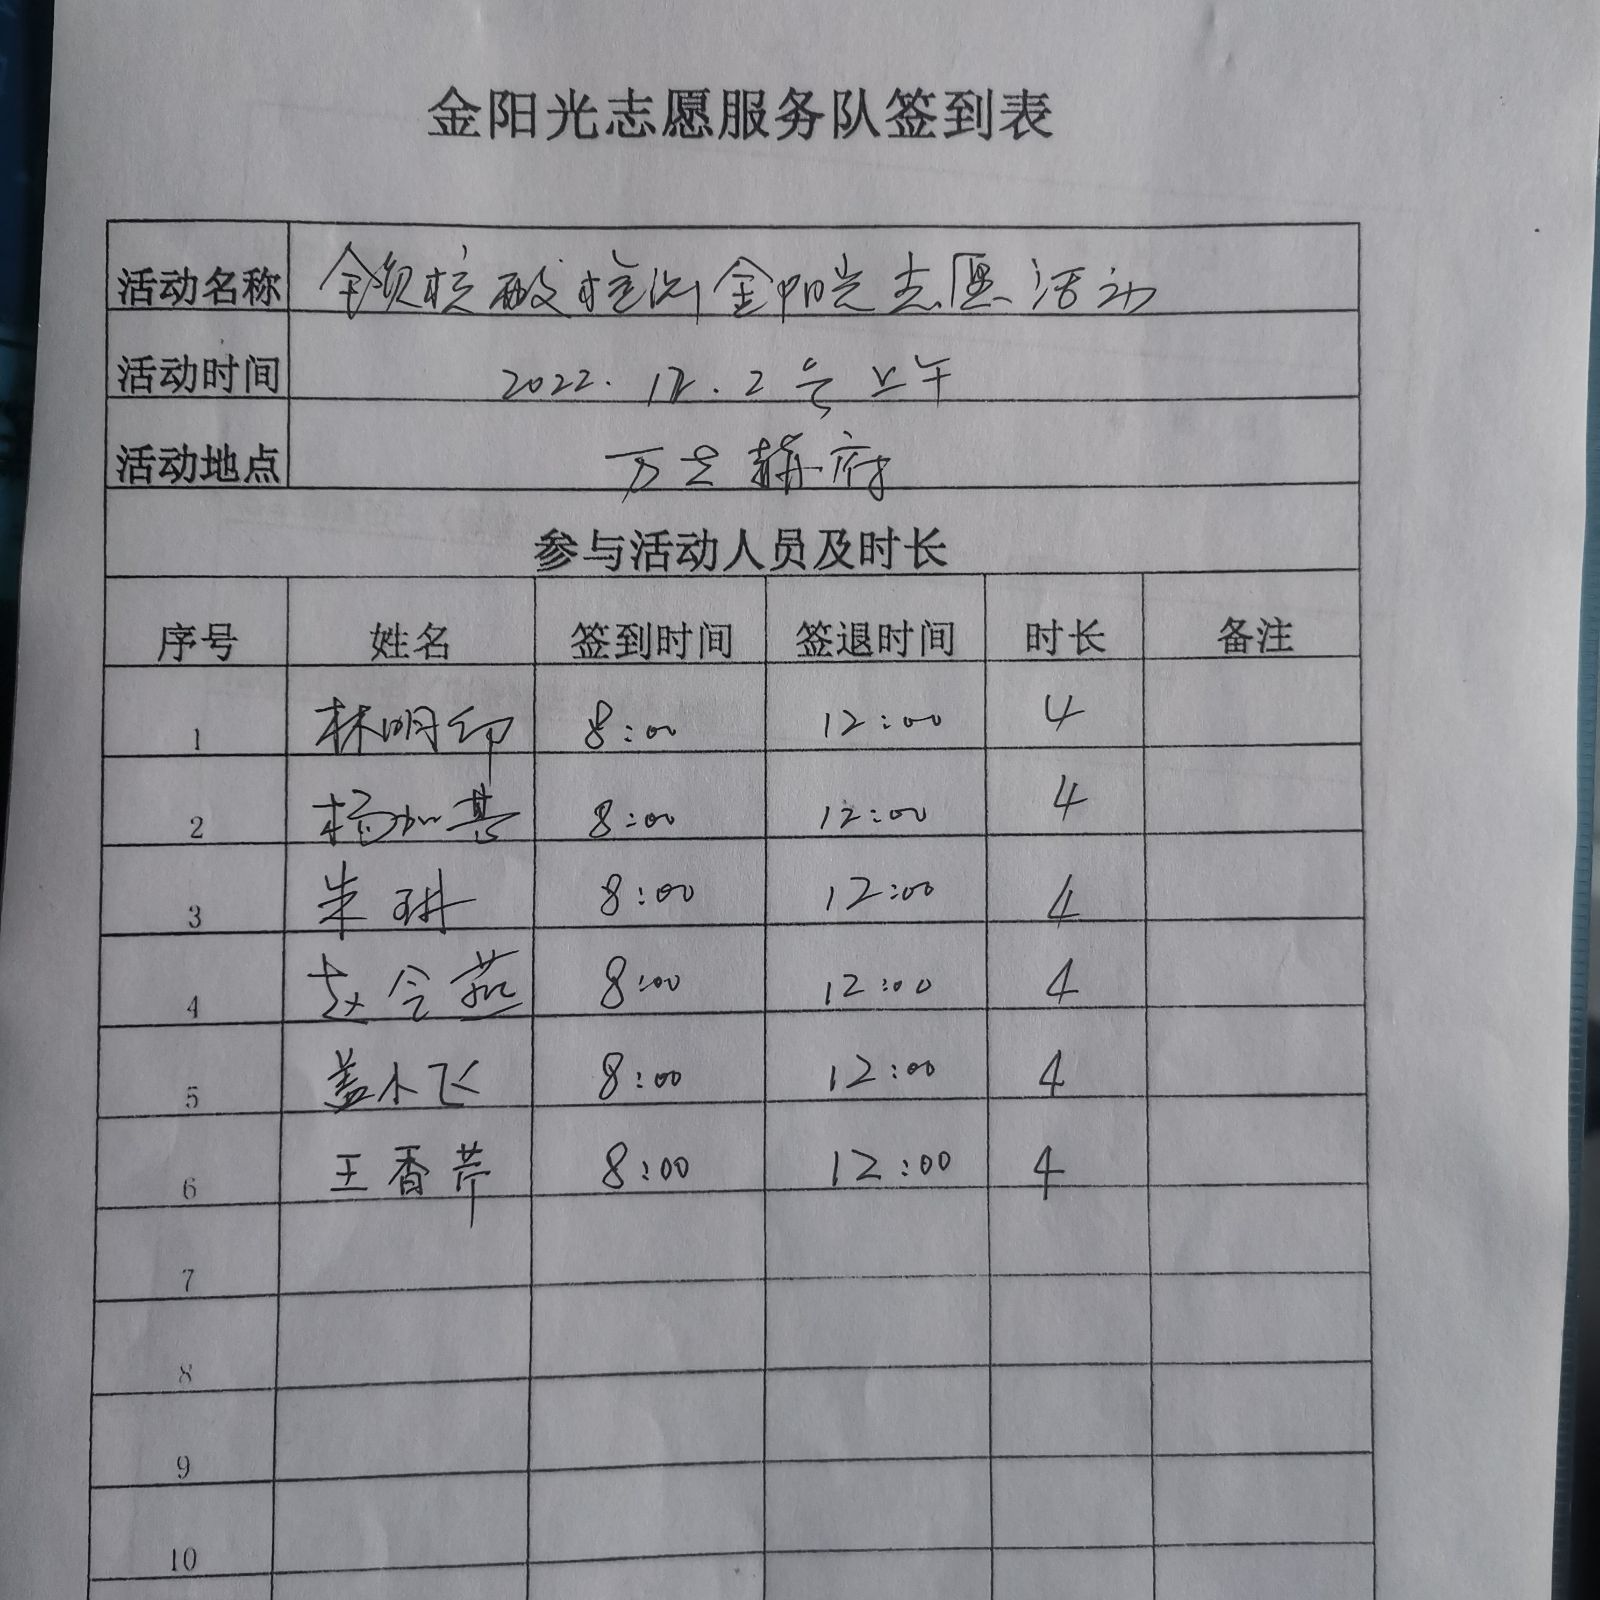 金阳光志愿服务队签到表
活动名称 全员核酸检测金阳光志愿活动
活动时间 2022.12.2号上午
活动地点 万兴 府
参与活动人员及时长
序号 姓名 签到时间 签退时间 时长 备注
1 林明印 8:00 12:00 4
2 杨加基 8:00 12:00 4
3 朱琳 8:00 12:00 4
4 赵令燕 8:00 12:00 4
5 盖小飞 8:00 12:00 4
6 王香芹 8:00 12:00 4
7
8
9
10